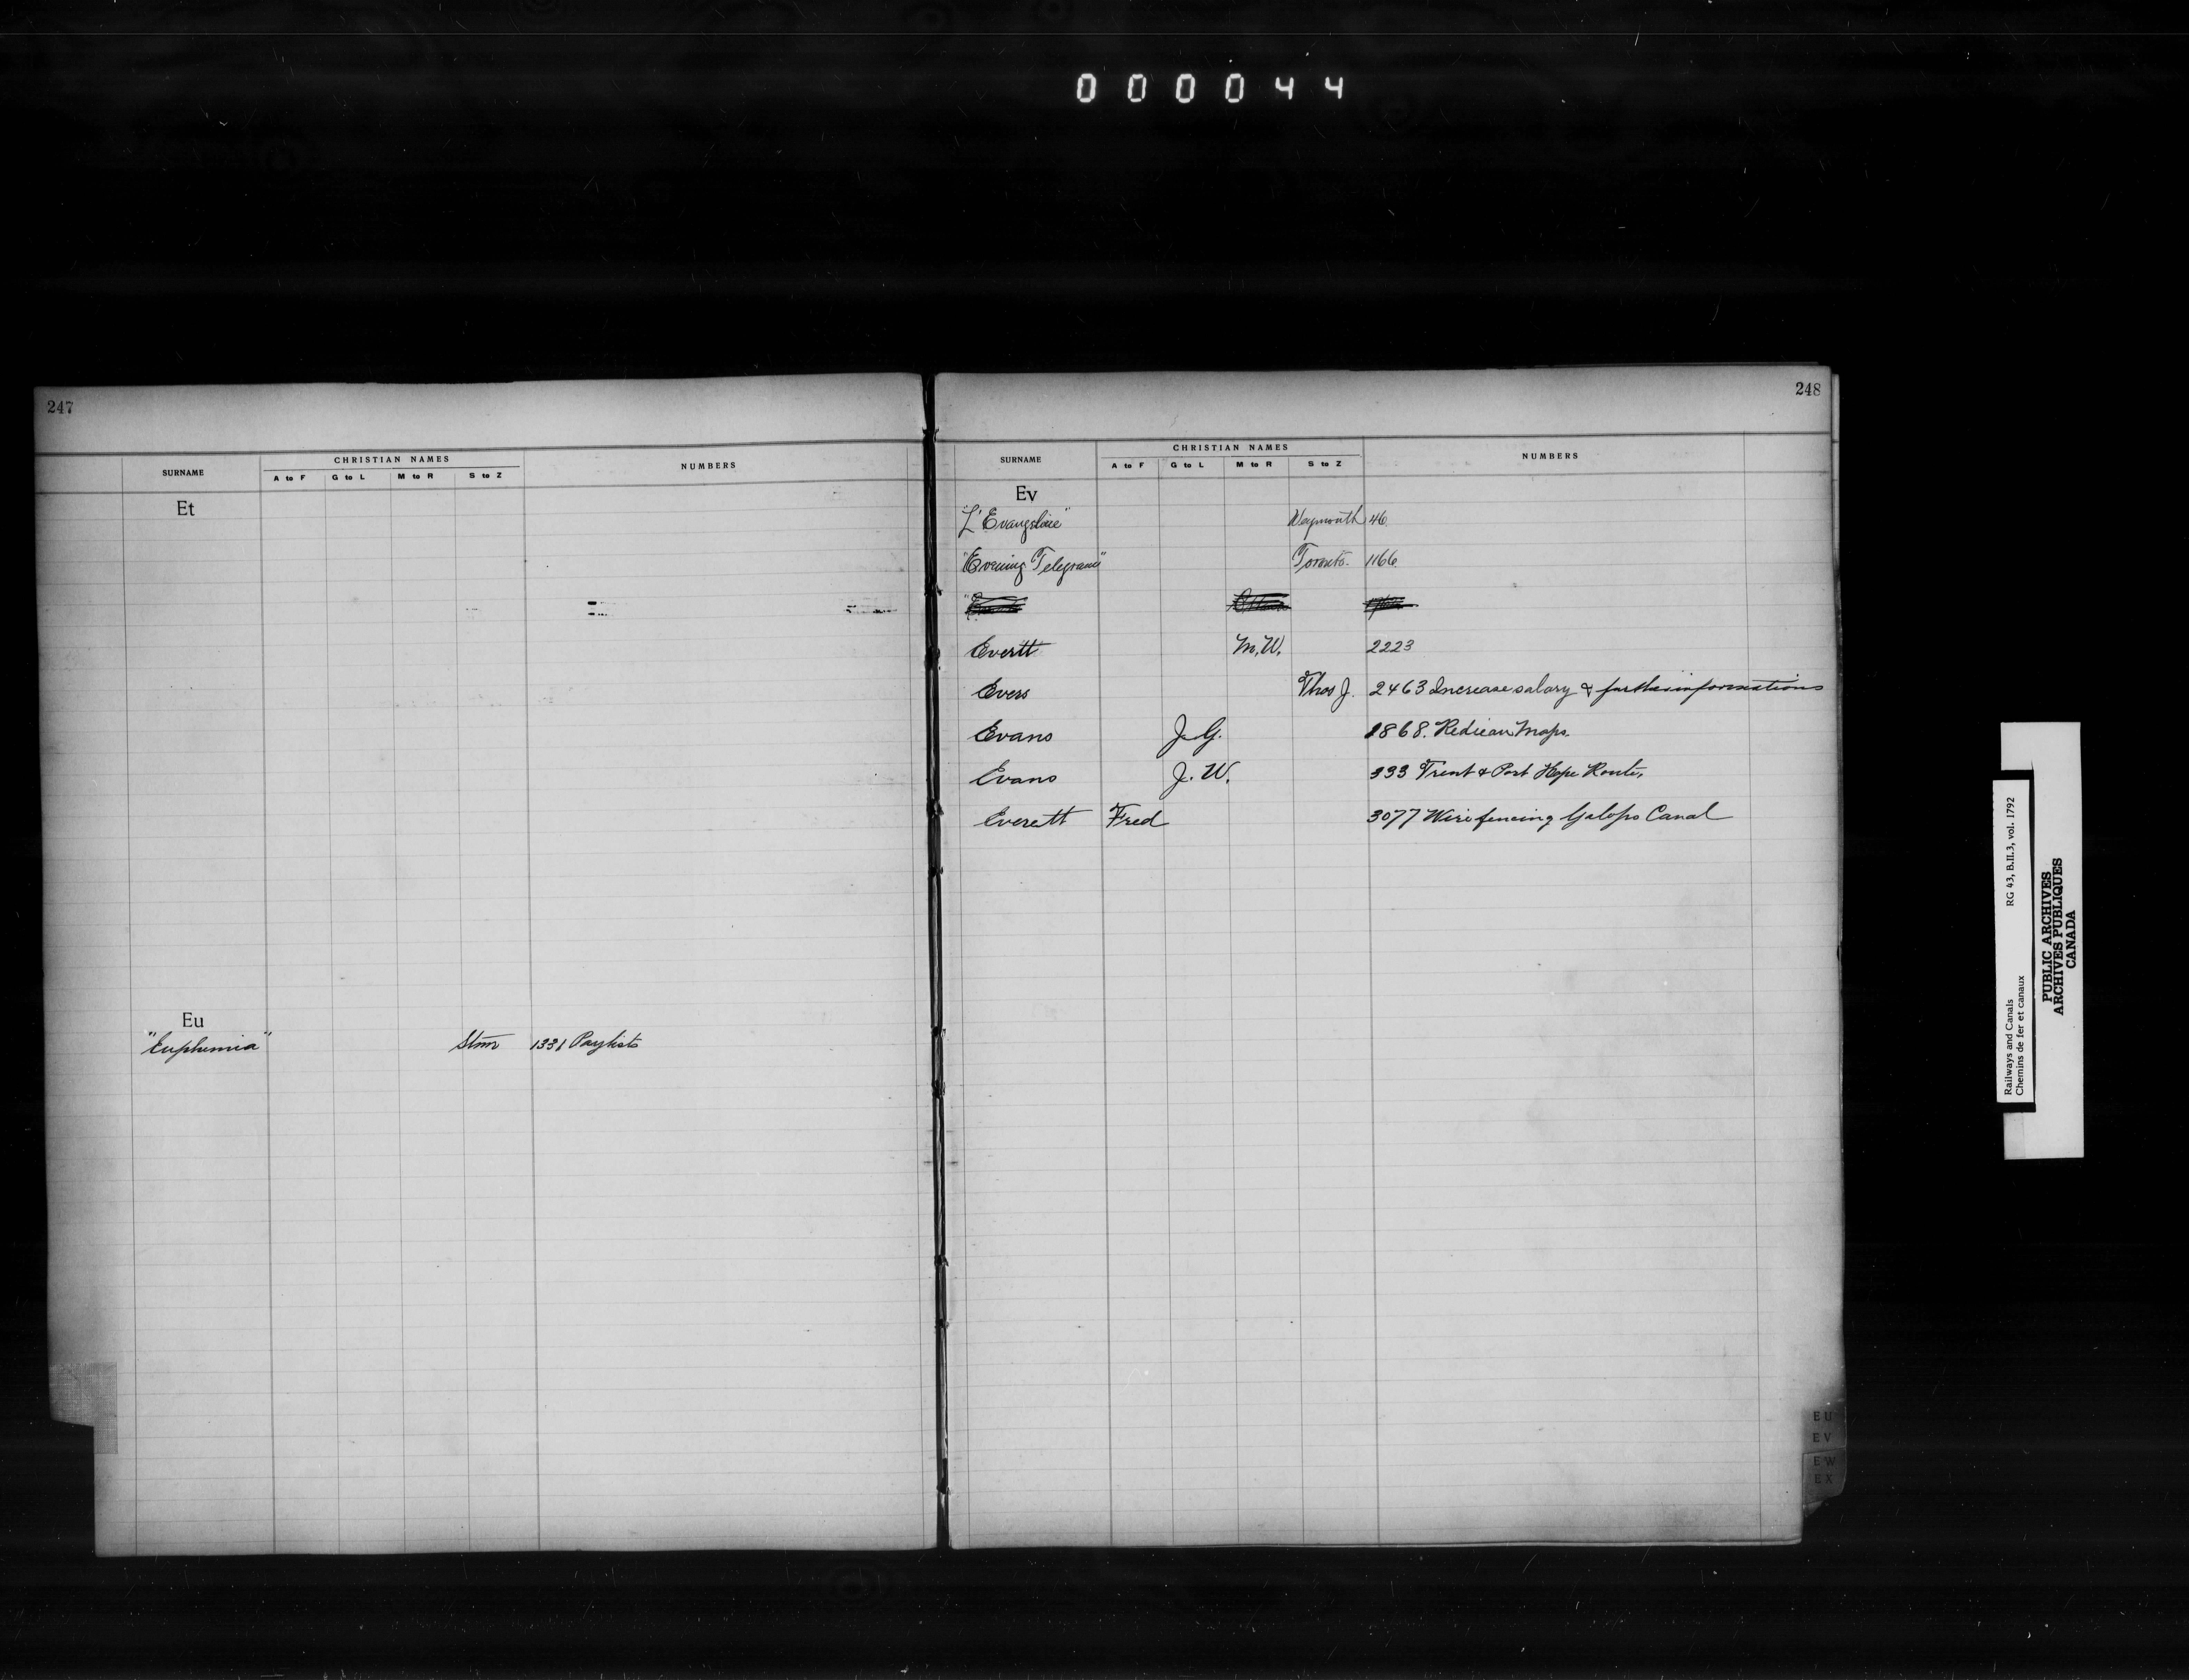 000044
247
SURNAME CHRISTIAN NAMES NUMBERS
A to F G to L M to R S to Z
Et
Eu
"Euphemia" Stmr 1331 Paylists
248
SURNAME CHRISTIAN NAMES NUMBERS
A to F G to L M to R S to Z
Ev
"L'Evangeline" Weymouth 46
"Evening Telegram" Toronto. 1166
Evertt M.W. 2223
Evers Thos J. 2463 Increase salary & further informations
Evans J.G. 1868. Maps.
Evans J.W. 333 Trent & Port Hope Route,
Everett Fred 3077 Wire fencing Galops Canal
EU
EV
EW
EX
Railways and Canals RG 43, B.II.3, vol. 1792
Chemins de fer et canaux
PUBLIC ARCHIVES
ARCHIVES PUBLIQUES
CANADA